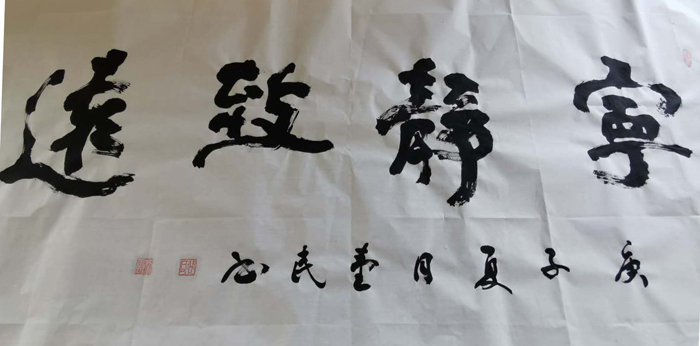 寧靜致遠
庚子夏月爱民书